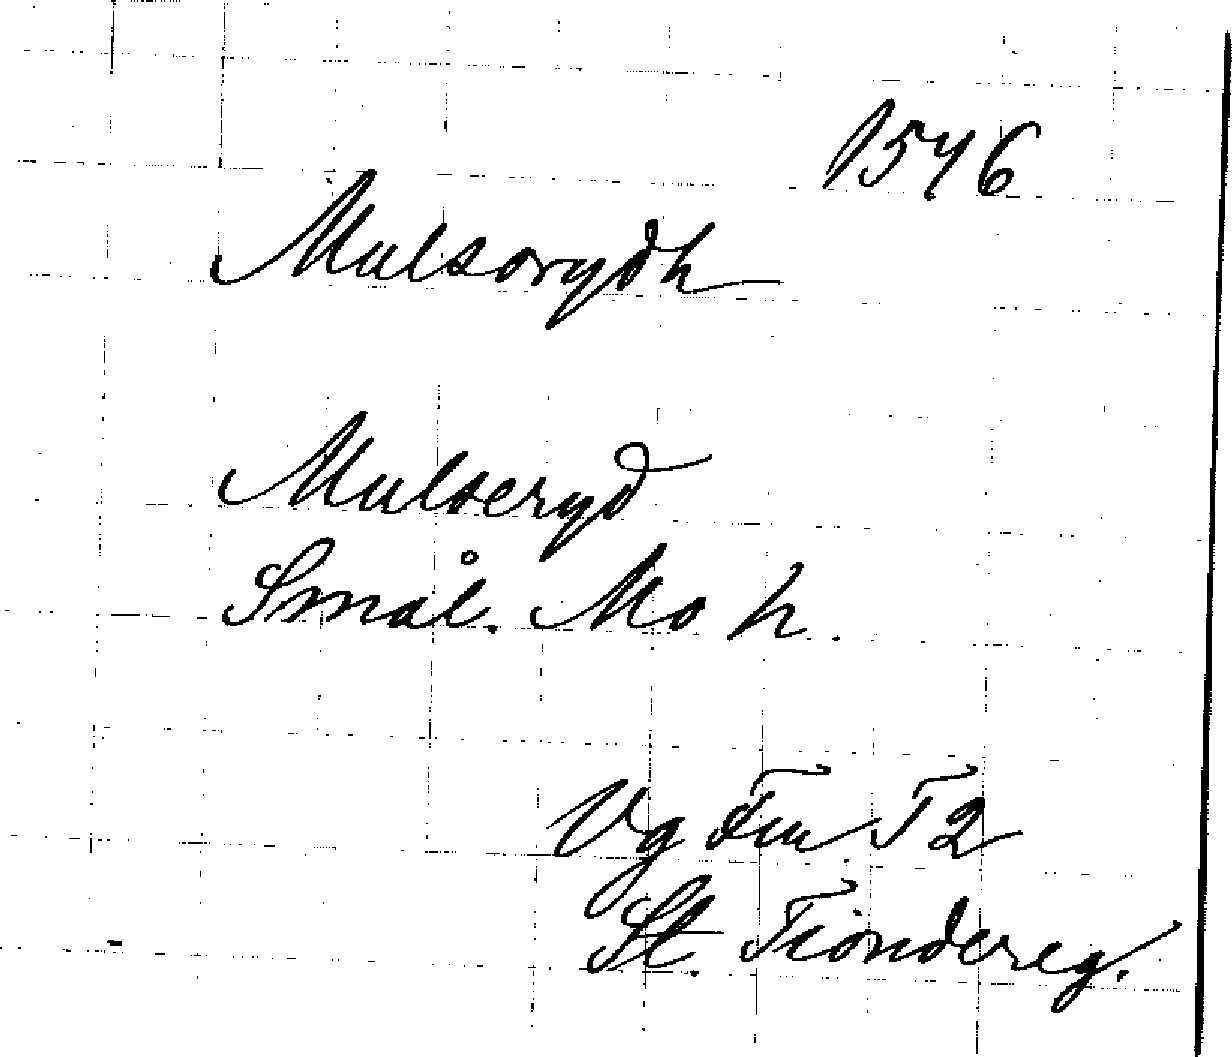 1546
Mulsorydh
Mulseryd
Smål. Mo h.
Vg Fm. T2
St. Tiondereg.